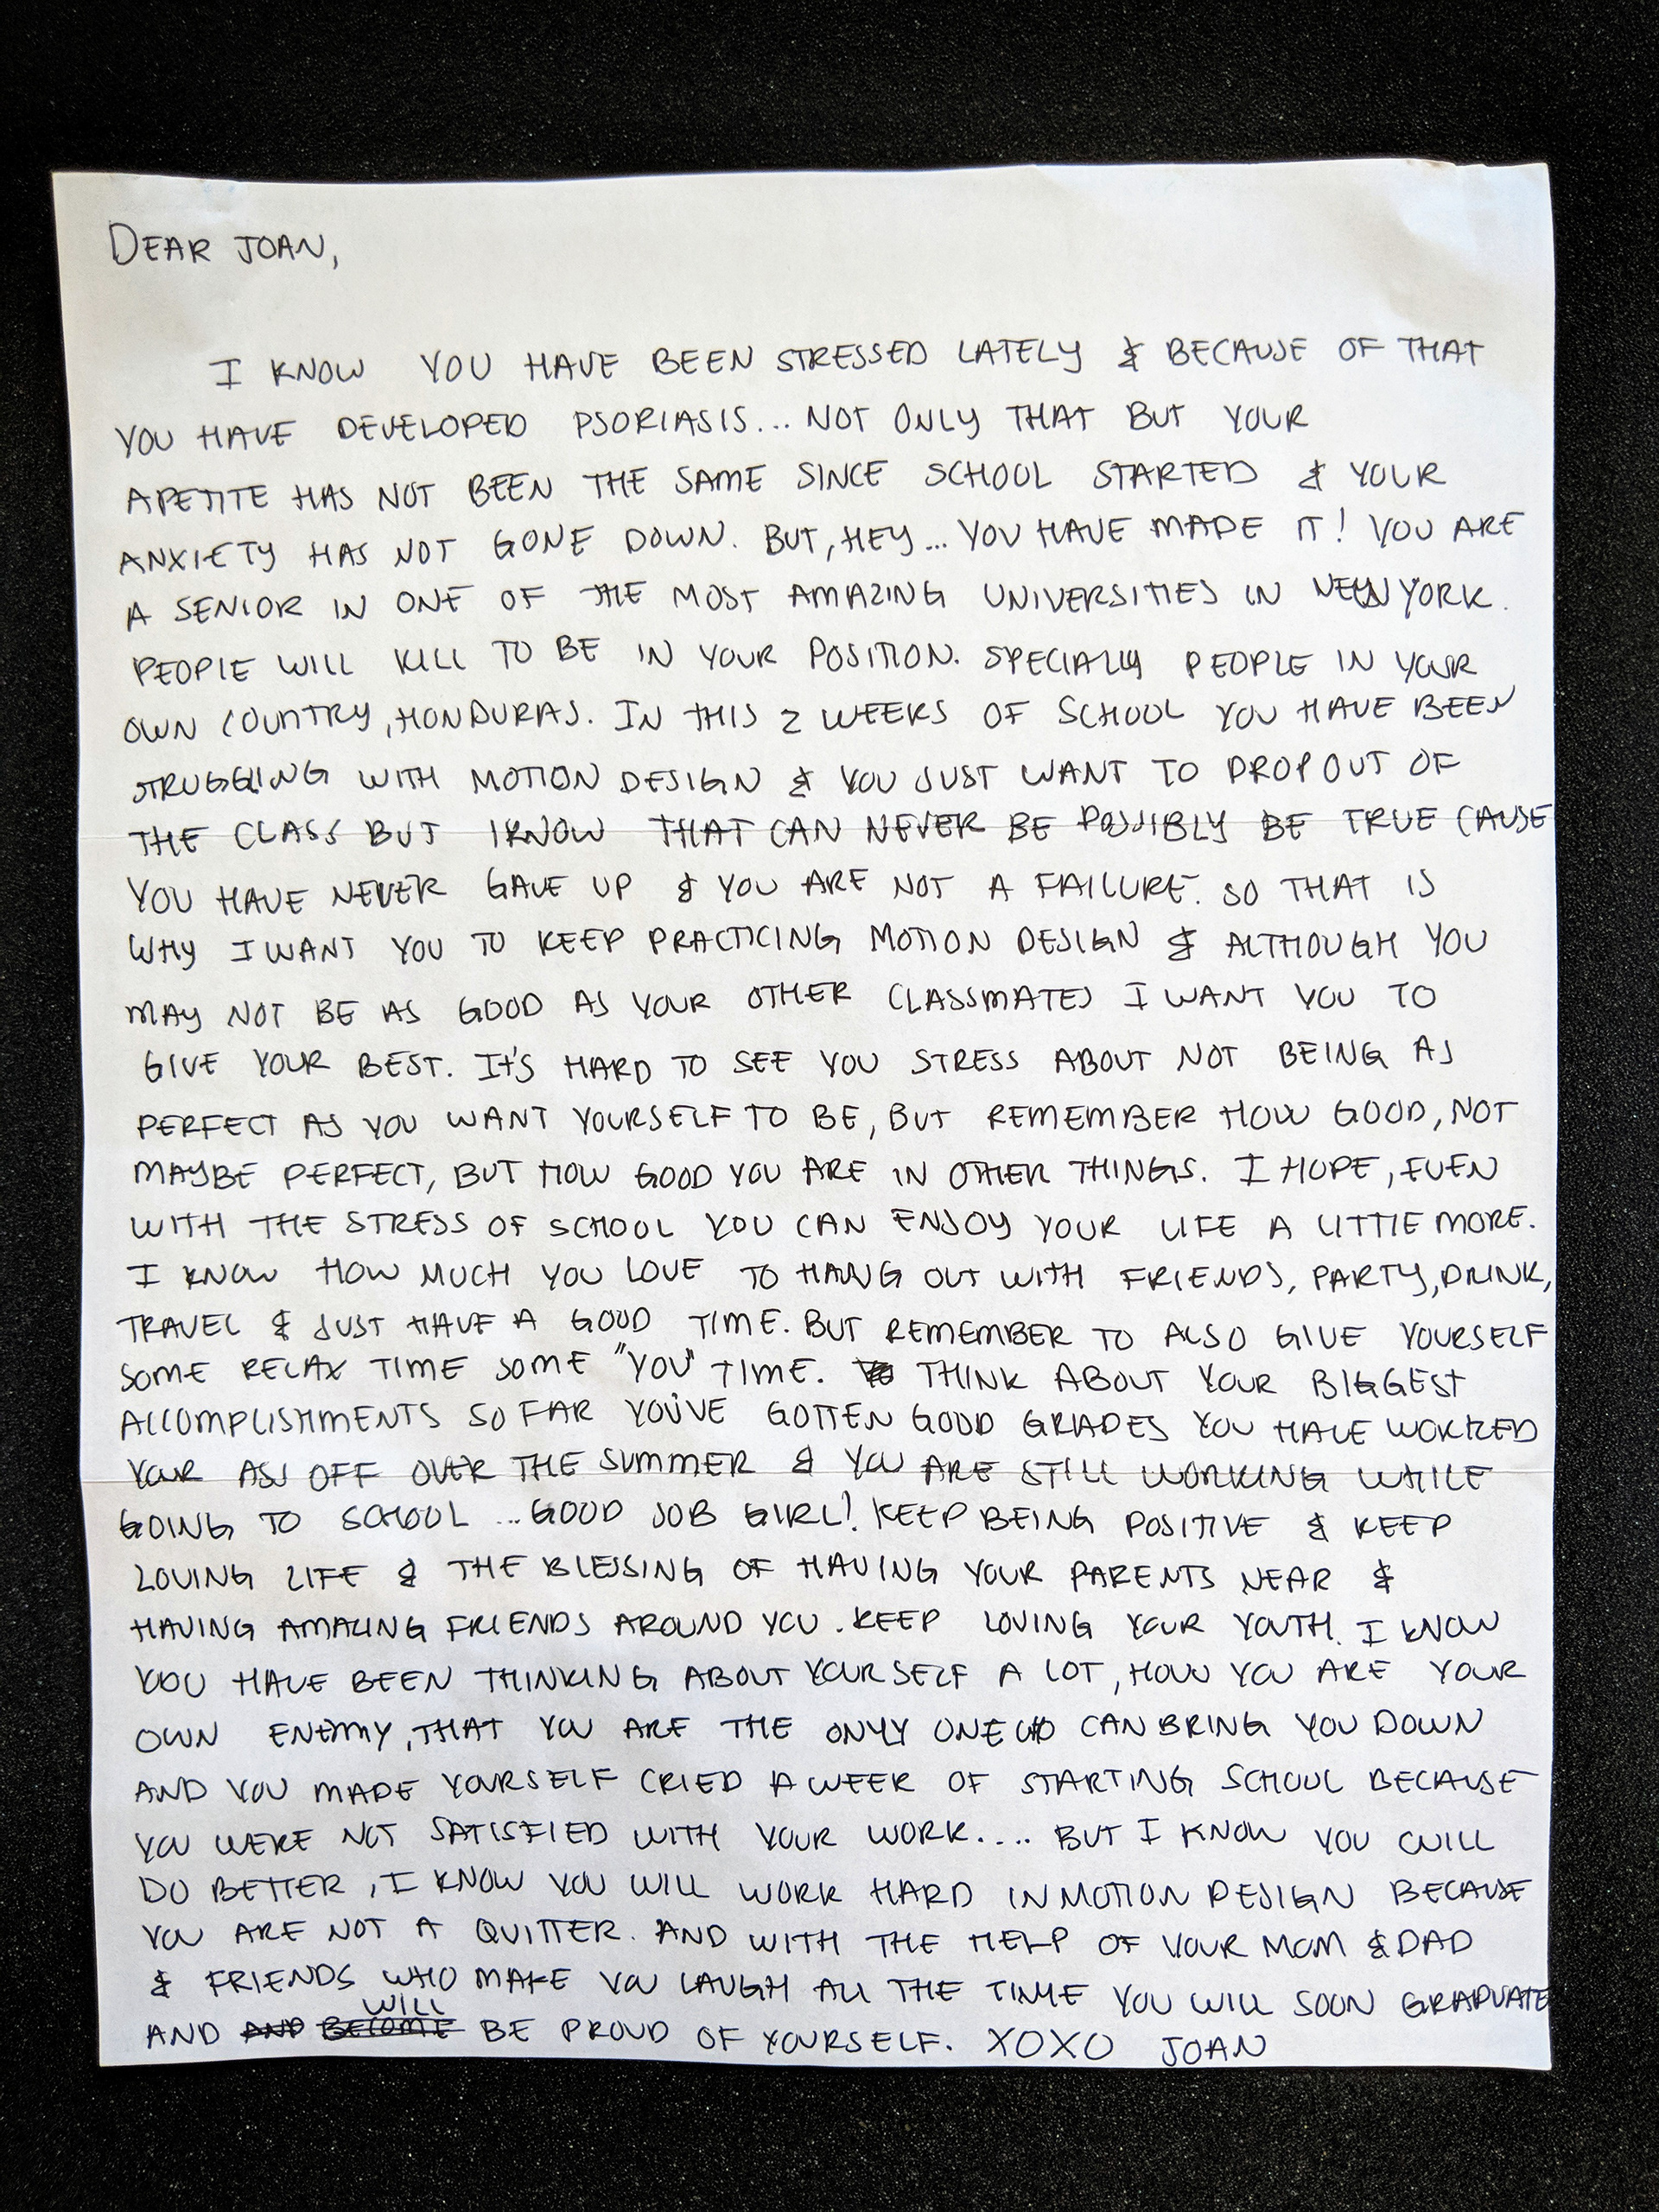 DEAR JOAN,
I KNOW YOU HAVE BEEN STRESSED LATELY & BECAUSE OF THAT
YOU HAVE DEVELOPED PSORIASIS... NOT ONLY THAT BUT YOUR
APETITE HAS NOT BEEN THE SAME SINCE SCHOOL STARTED & YOUR
ANXIETY HAS NOT GONE DOWN. BUT, HEY... YOU HAVE MADE IT! YOU ARE
A SENIOR IN ONE OF THE MOST AMAZING UNIVERSITIES IN NEW YORK.
PEOPLE WILL KILL TO BE IN YOUR POSITION. SPECIALLY PEOPLE IN YOUR
OWN COUNTRY, HONDURAS. IN THIS 2 WEEKS OF SCHOOL YOU HAVE BEEN
STRUGGLING WITH MOTION DESIGN & YOU JUST WANT TO DROP OUT OF
THE CLASS BUT I KNOW THAT CAN NEVER BE POSSIBLY BE TRUE CAUSE
YOU HAVE NEVER GAVE UP & YOU ARE NOT A FAILURE. SO THAT IS
WHY I WANT YOU TO KEEP PRACTICING MOTION DESIGN & ALTHOUGH YOU
MAY NOT BE AS GOOD AS YOUR OTHER CLASSMATES I WANT YOU TO
GIVE YOUR BEST. IT'S HARD TO SEE YOU STRESS ABOUT NOT BEING AS
PERFECT AS YOU WANT YOURSELF TO BE, BUT REMEMBER HOW GOOD, NOT
MAYBE PERFECT, BUT HOW GOOD YOU ARE IN OTHER THINGS. I HOPE, EVEN
WITH THE STRESS OF SCHOOL YOU CAN ENJOY YOUR LIFE A LITTLE MORE.
I KNOW HOW MUCH YOU LOVE TO HANG OUT WITH FRIENDS, PARTY, DRINK,
TRAVEL & JUST HAVE A GOOD TIME. BUT REMEMBER TO ALSO GIVE YOURSELF
SOME RELAX TIME SOME "YOU" TIME. THINK ABOUT YOUR BIGGEST
ACCOMPLISHMENTS SO FAR YOU'VE GOTTEN GOOD GRADES YOU HAVE WORKED
YOUR ASS OFF OVER THE SUMMER & YOU ARE STILL WORKING WHILE
GOING TO SCHOOL ... GOOD JOB GIRL! KEEP BEING POSITIVE & KEEP
LOVING LIFE & THE BLESSING OF HAVING YOUR PARENTS NEAR &
HAVING AMAZING FRIENDS AROUND YOU. KEEP LOVING YOUR YOUTH. I KNOW
YOU HAVE BEEN THINKING ABOUT YOURSELF A LOT, HOW YOU ARE YOUR
OWN ENEMY, THAT YOU ARE THE ONLY ONE CAN BRING YOU DOWN
AND YOU MADE YOURSELF CRIED A WEEK OF STARTING SCHOOL BECAUSE
YOU WERE NOT SATISFIED WITH YOUR WORK.... BUT I KNOW YOU WILL
DO BETTER, I KNOW YOU WILL WORK HARD IN MOTION DESIGN BECAUSE
YOU ARE NOT A QUITTER. AND WITH THE HELP OF YOUR MOM & DAD
& FRIENDS WHO MAKE YOU LAUGH ALL THE TIME YOU WILL SOON GRADUATE
AND AND BECOME WILL BE PROUD OF YOURSELF. XOXO JOAN